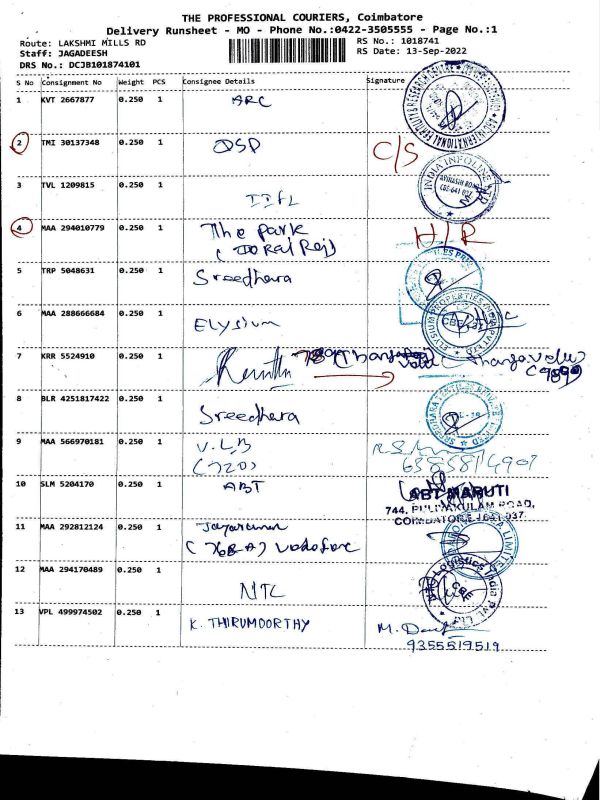 THE PROFESSIONAL COURIERS, Coimbatore
Delivery Runsheet - MO - Phone No.:0422-3505555 - Page No.:1
Route: LAKSHMI MILLS RD RS No.: 1018741
Staff: JAGADEESH RS Date: 13-Sep-2022
DRS No.: DCJB101874101
S No Consignment No Weight PCS Consignee Details Signature
1 KVT 2667877 0.250 1 ARC
2 TMI 30137348 0.250 1 DSP C/S
3 TVL 1209815 0.250 1 IIFL INDIA INFOLINE
AVINASHI ROAD
CBE-641 037
4 MAA 294010779 0.250 1 The Park H/R
5 TRP 5048631 0.250 1 Sreedhara
6 MAA 288666684 0.250 1 ELYSIUM ELYSIUM PROPERTIES INDIA PVT LTD
7 KRR 5524910 0.250 1
8 BLR 4251817422 0.250 1 Sreedhara
9 MAA 566970181 0.250 1 V.L.B
(720)
10 SLM 5204170 0.250 1 ABT ABT MARUTI
744, PULIYAKULAM ROAD,
COIMBATORE - 641 037.
11 MAA 292812124 0.250 1 Jayakumar
(768-A) Vodafone
12 MAA 294170489 0.250 1 NTL
13 VPL 499974502 0.250 1 K. THIRUMOORTHY
9355519519